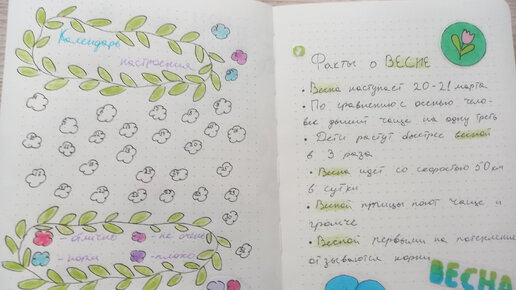 Календарь
настроения
- отлично
- не очень
- норм
- плохо
Факты о ВЕСНЕ
• Весна наступает 20-21 марта
• По сравнению с осенью чело-
век дышит чаще на одну треть
• Дети растут быстрее весной
в 3 раза
• Весна идёт со скоростью 50 км
в сутки
• Весной птицы поют чаще и
громче
• Весной первыми на потепление
отзываются корни
ВЕСНА